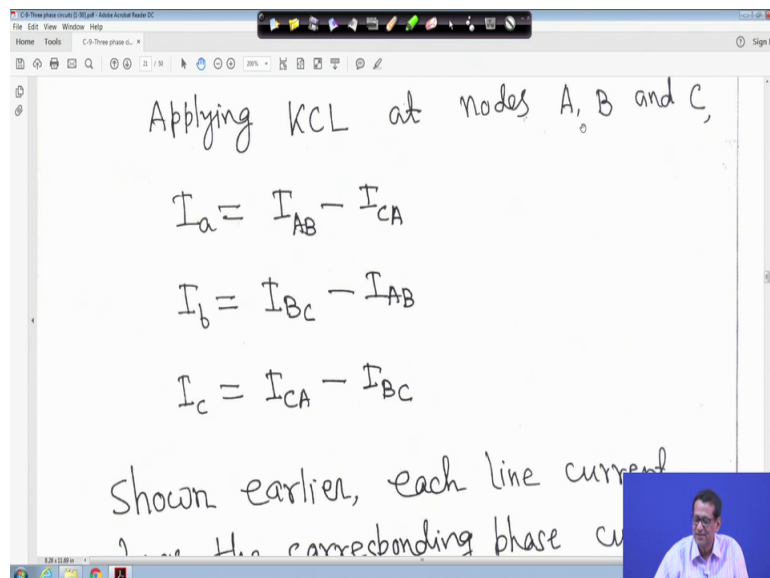 C-9-Three phase circuits [1-50].pdf - Adobe Acrobat Reader DC
File Edit View Window Help
Home Tools C-9-Three phase ci... × Sign I
21 / 50 200%
Applying KCL at nodes A, B and C,
I_a = I_AB - I_CA
I_b = I_BC - I_AB
I_c = I_CA - I_BC
Shown earlier, each line current
the corresponding phase cu
8.28 x 11.69 in